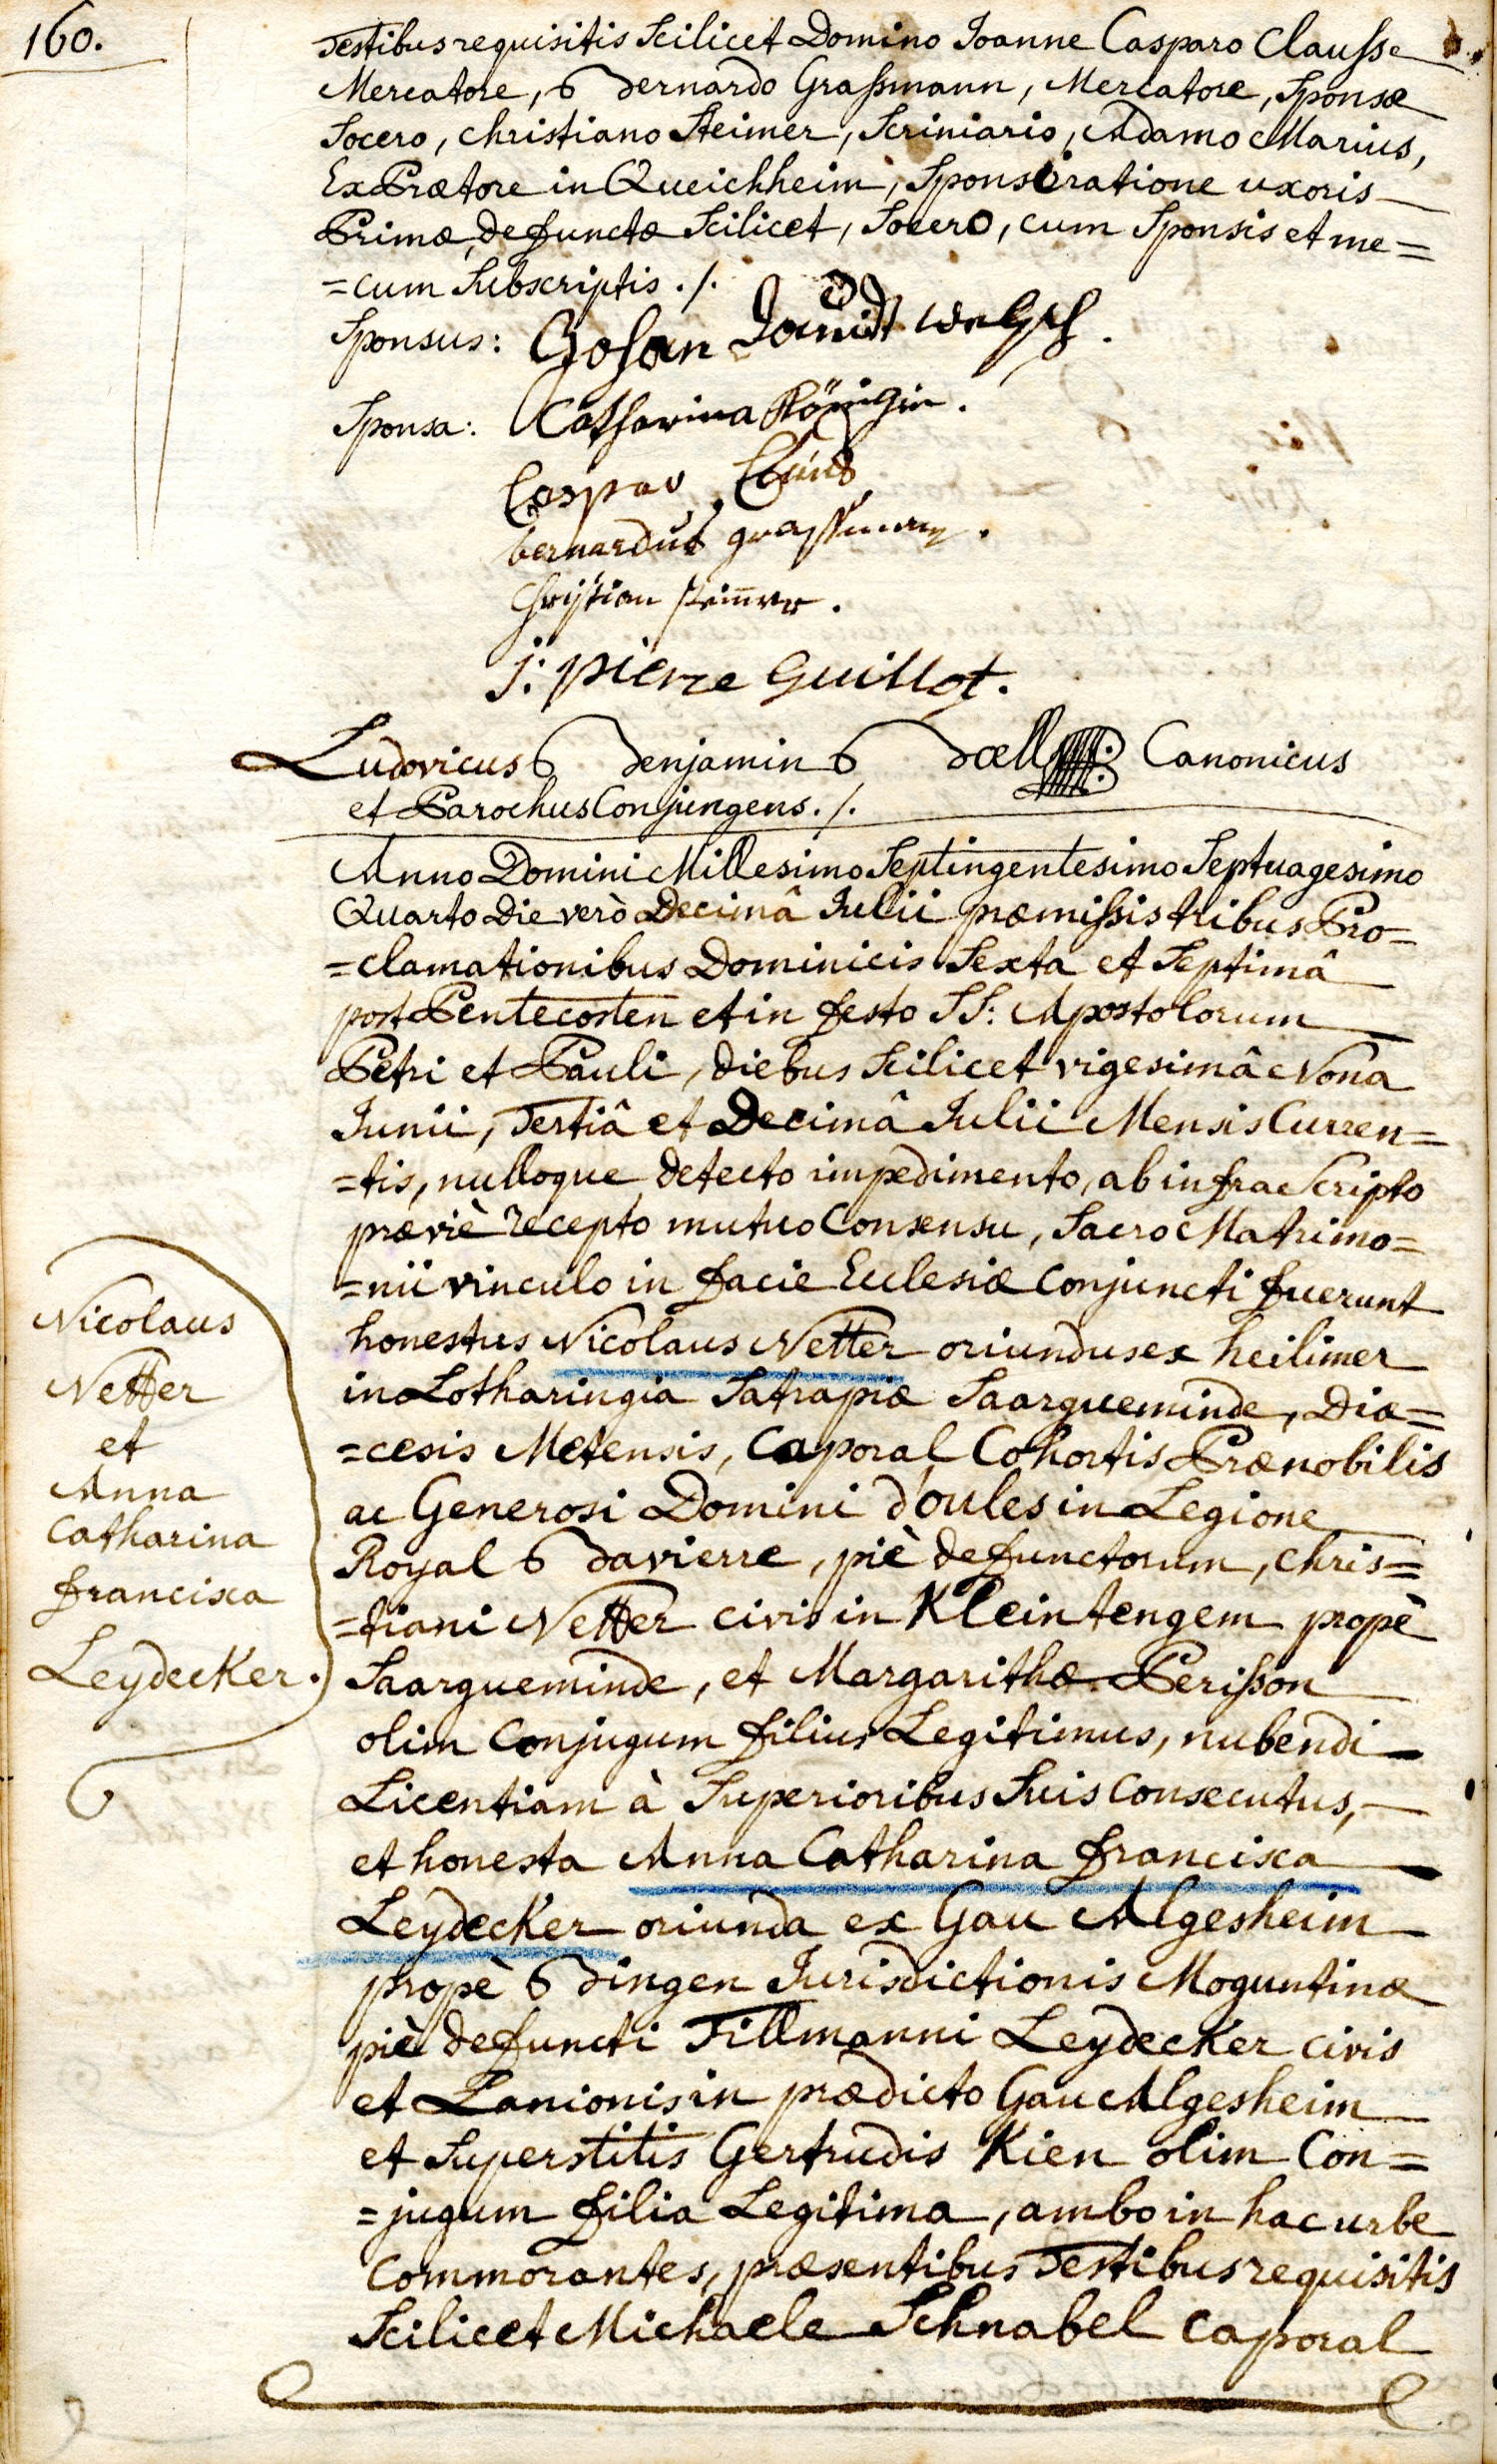 160.
Testibus requisitis Scilicet Domino Joanne Casparo Clausse
Mercatore, Bernardo Graßmann, Mercatore, Sponsæ
Socero, Christiano Steimer, Scriniario, Adamo Marius,
Ex Prætore in Queichheim, Sponsi ratione uxoris
Primæ, defunctæ Scilicet, Socero, cum Sponsis et me=
=cum Subscriptis ./.
Sponsus: Johan
Sponsa: Catharina Königin.
Caspar
bernardus grassmann.
Christian steim̄er.
j: pierre Guillot.
Ludovicus Benjamin Bœll Canonicus
et Parochus Conjungens ./.
Anno Domini Millesimo Septingentesimo Septuagesimo
Quarto Die verò Decimâ Julii præmißis tribus Pro=
=clamationibus Dominicis Sexta et Septimâ
post Pentecosten et in festo SS: Apostolorum
Petri et Pauli, diebus Scilicet vigesimâ Nona
Junii, Tertiâ et Decimâ Julii Mensis Curren=
=tis, nulloque detecto impedimento, ab infra Scripto
præviè recepto mutuo Consensu, Sacro Matrimo=
=nii vinculo in facie Ecclesiæ Conjuncti fuerunt
honestus Nicolaus Netter oriundus ex heilimer
in Lotharingia Satrapiæ Saargueminde, Diœ=
=cesis Metensis, Caporal Cohortis Prænobilis
ac Generosi Domini d'oules in Legione
Royal Bavierre, piè defunctorum, Chris=
=tiani Netter civis in Kleintengem propè
Saargueminde, et Margarithæ Perißon
olim Conjugum filius Legitimus, nubendi
Licentiam à Superioribus Suis Consecutus,
et honesta Anna Catharina francisca
Leydecker oriunda ex Gau Algesheim
propè Bingen Jurisdictionis Moguntinæ
piè defuncti Tillmanni Leydecker civis
et Lanionis in prædicto Gau Algesheim
et Superstitis Gertrudis Kien olim Con=
=jugum filia Legitima, ambo in hac urbe
Commorantes, præsentibus Testibus requisitis
Scilicet Michaele Schnabel Caporal
Nicolaus
Netter
et
Anna
Catharina
francisca
Leydecker.